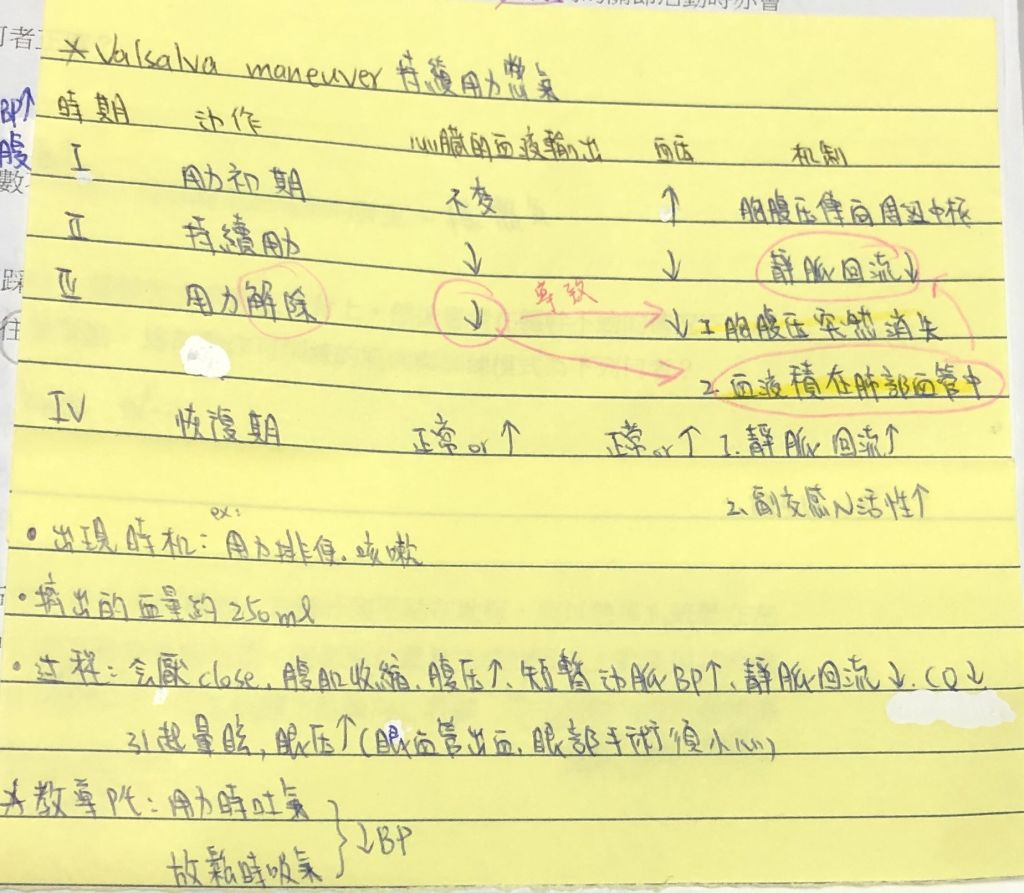 的關節活動時亦會
*Valsalva maneuver 持續用力憋氣
時期 动作 心臟的血液輸出 血压 机制
BP↑
腹
數
I 用力初期 不变 ↑ 胸腹压傳向周边中核
II 持續用力 ↓ ↓ 靜脈回流↓
III 用力解除 ↓ 導致 ↓ 1. 胸腹压突然消失
踩
往
2. 血液積在肺部血管中
IV 恢復期 正常 or ↑ 正常 or ↑ 1. 靜脈回流↑
2. 副交感N活性↑
• 出現時机: ex: 用力排便、咳嗽
• 擠出的血量約 250ml
• 过程: 会厭 close、腹肌收縮、腹压↑、短暫动脈BP↑、靜脈回流↓、CO↓
引起暈眩, 眼压↑(眼血管出血、眼部手術須小心)
*教導Pt: 用力時吐氣
放鬆時吸氣 } ↓BP